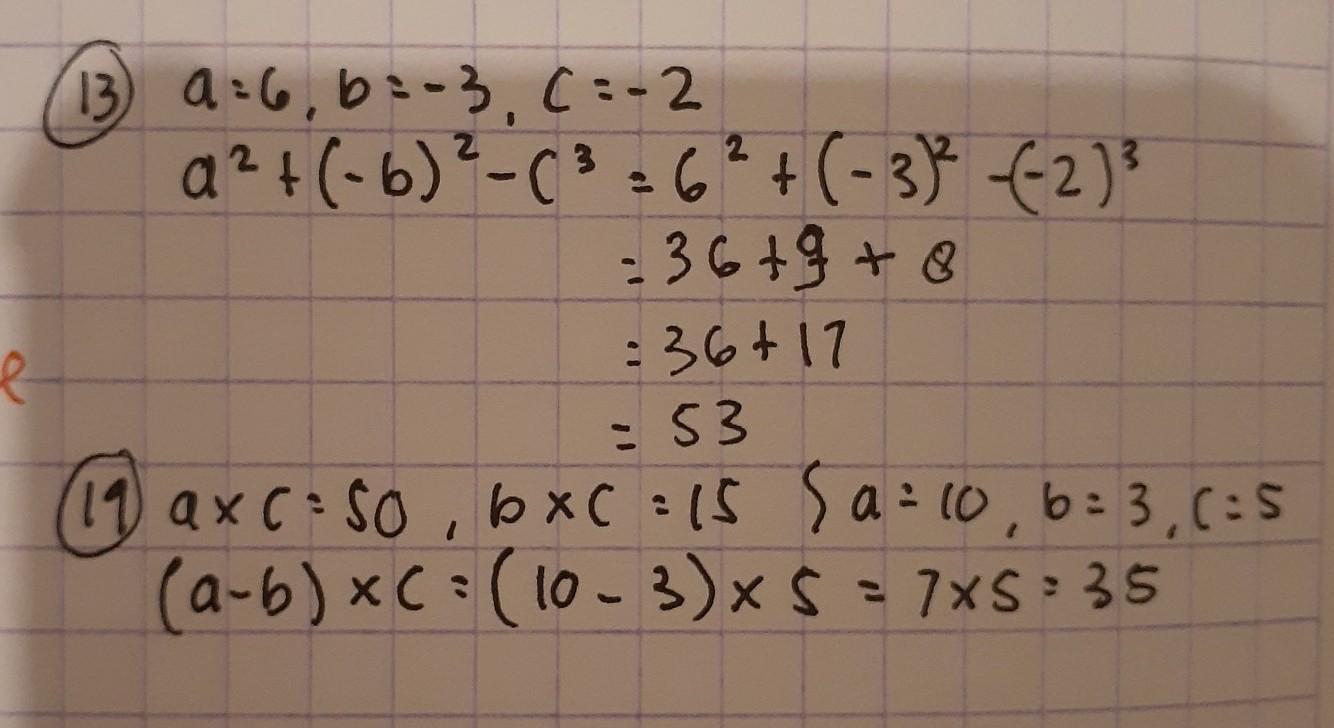 13 a=6, b=-3, c=-2
a² + (-b)² - c³ = 6² + (-3)² - (-2)³
= 36 + 9 + 8
= 36 + 17
= 53
19 a×c=50, b×c=15 { a=10, b=3, c=5
(a-b)×c=(10-3)×5=7×5=35
e